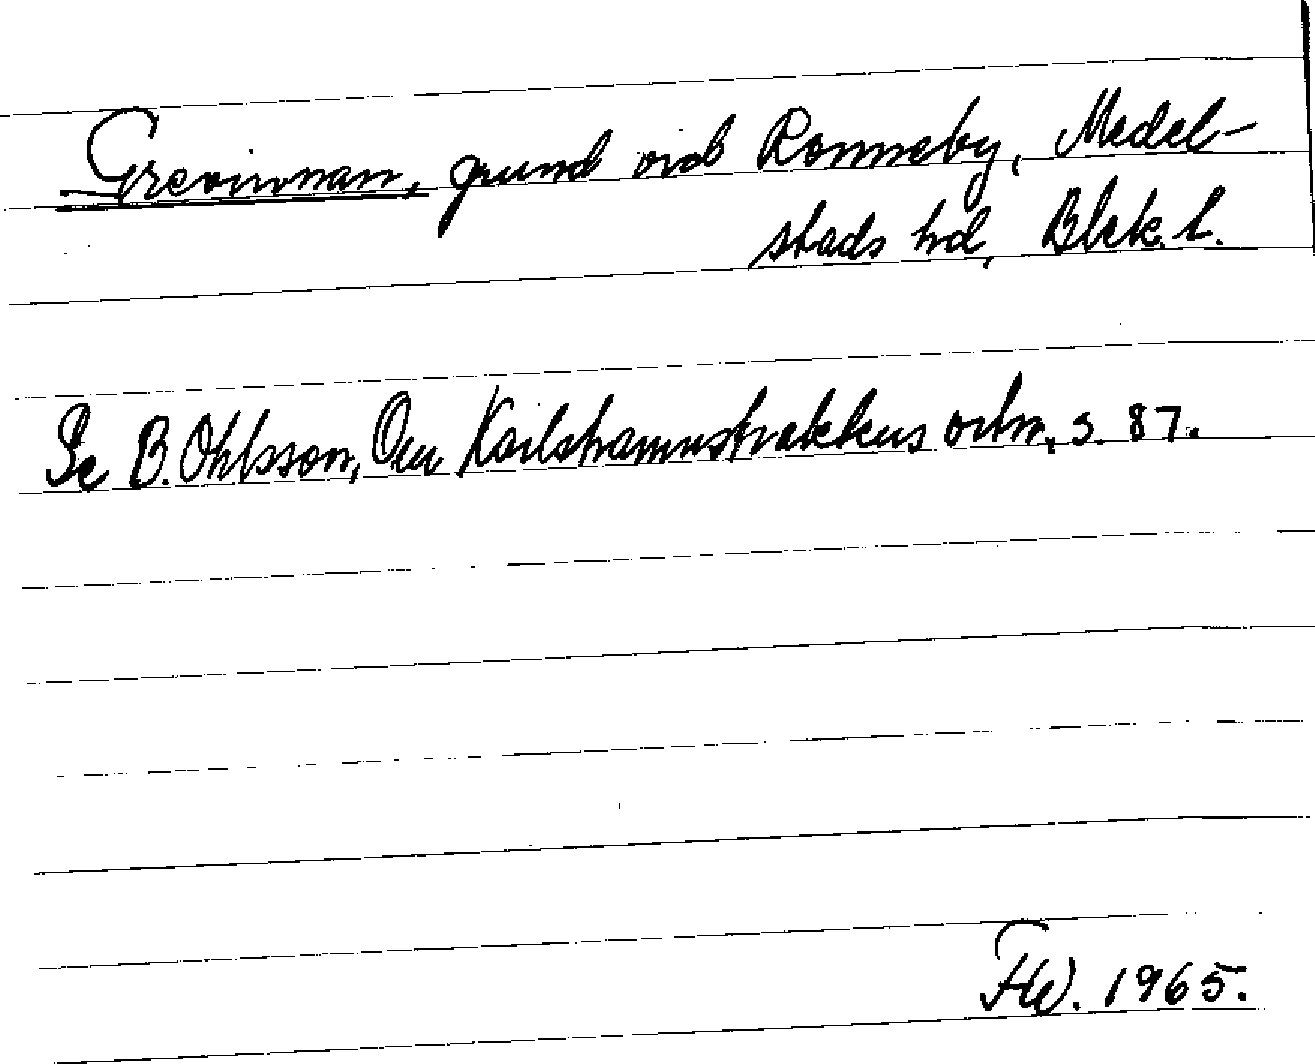 Grevinnan, grund vid Ronneby, Medel-
stads hd, Blek. l.
Se B. Ohlsson, Om Karlshamnstraktens ortn, s. 87.
FW. 1965.